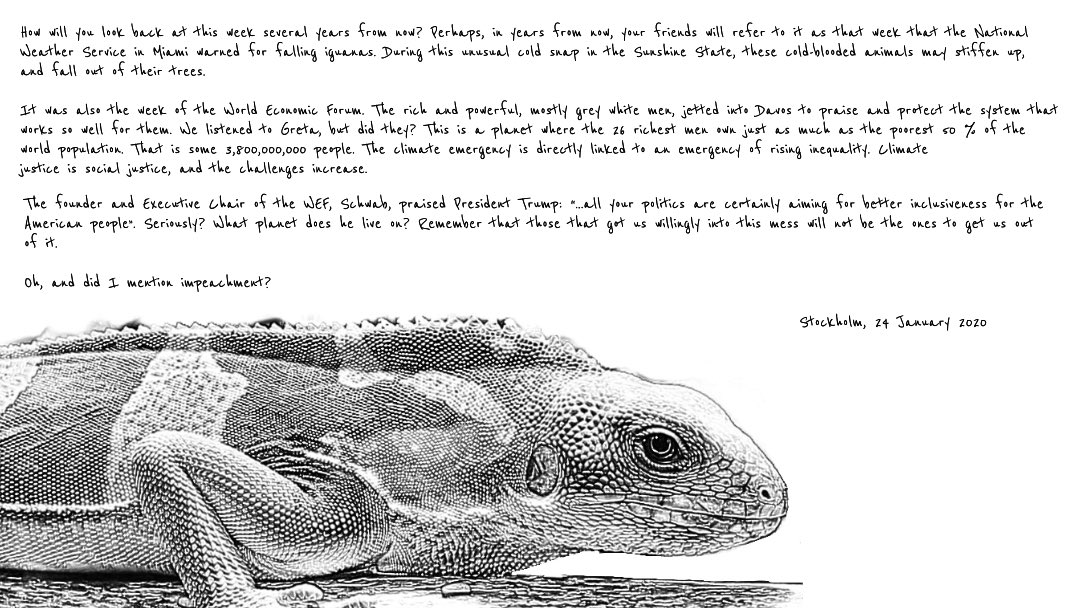 How will you look back at this week several years from now? Perhaps, in years from now, your friends will refer to it as that week that the National
Weather Service in Miami warned for falling iguanas. During this unusual cold snap in the Sunshine State, these cold-blooded animals may stiffen up,
and fall out of their trees.
It was also the week of the World Economic Forum. The rich and powerful, mostly grey white men, jetted into Davos to praise and protect the system that
works so well for them. We listened to Greta, but did they? This is a planet where the 26 richest men own just as much as the poorest 50 % of the
world population. That is some 3,800,000,000 people. The climate emergency is directly linked to an emergency of rising inequality. Climate
justice is social justice, and the challenges increase.
The founder and Executive Chair of the WEF, Schwab, praised President Trump: "...all your politics are certainly aiming for better inclusiveness for the
American people". Seriously? What planet does he live on? Remember that those that got us willingly into this mess will not be the ones to get us out
of it.
Oh, and did I mention impeachment?
Stockholm, 24 January 2020